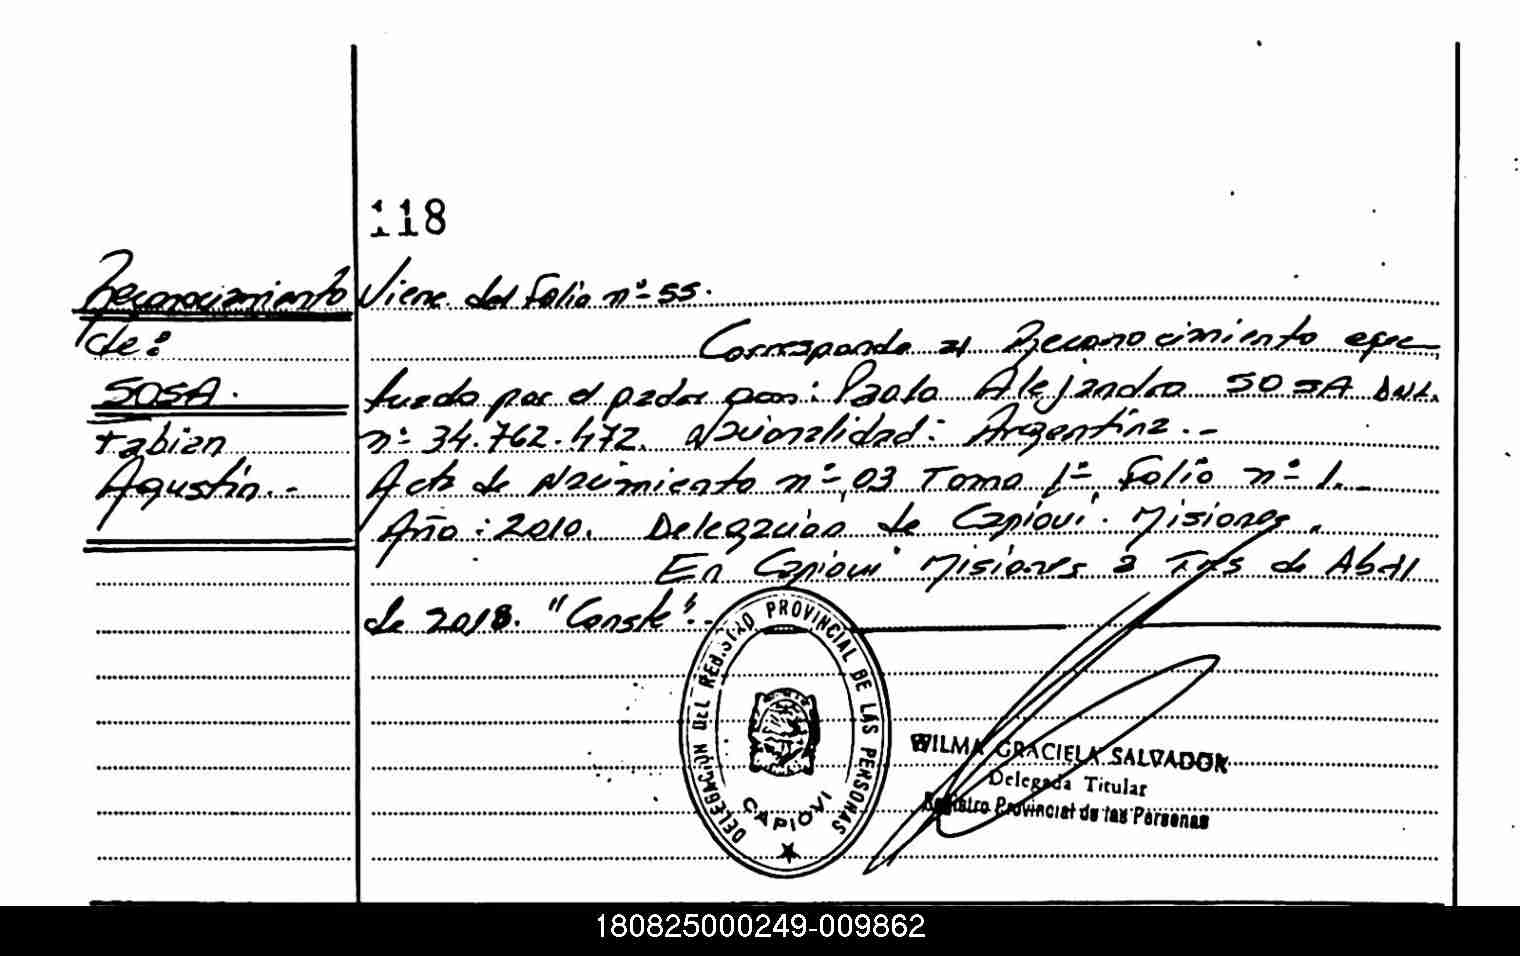 118
Reconocimiento
de:
SOSA.
Fabian
Agustín.-
Viene del Folio nº 55.
Corresponde al Reconocimiento efec
tuado por el padre Don: Paolo Alejandro SOSA D.N.I.
nº 34.762.472. Nacionalidad: Argentina.-
Acta de Nacimiento nº 03 Tomo 1º Folio nº 1.-
Año: 2010. Delegación de Capioví. Misiones.
En Capioví Misiones a Tres de Abril
de 2018. "Conste".-
DELEGACION DEL REGISTRO PROVINCIAL DE LAS PERSONAS
CAPIOVI
WILMA GRACIELA SALVADOR
Delegada Titular
Registro Provincial de las Personas
180825000249-009862